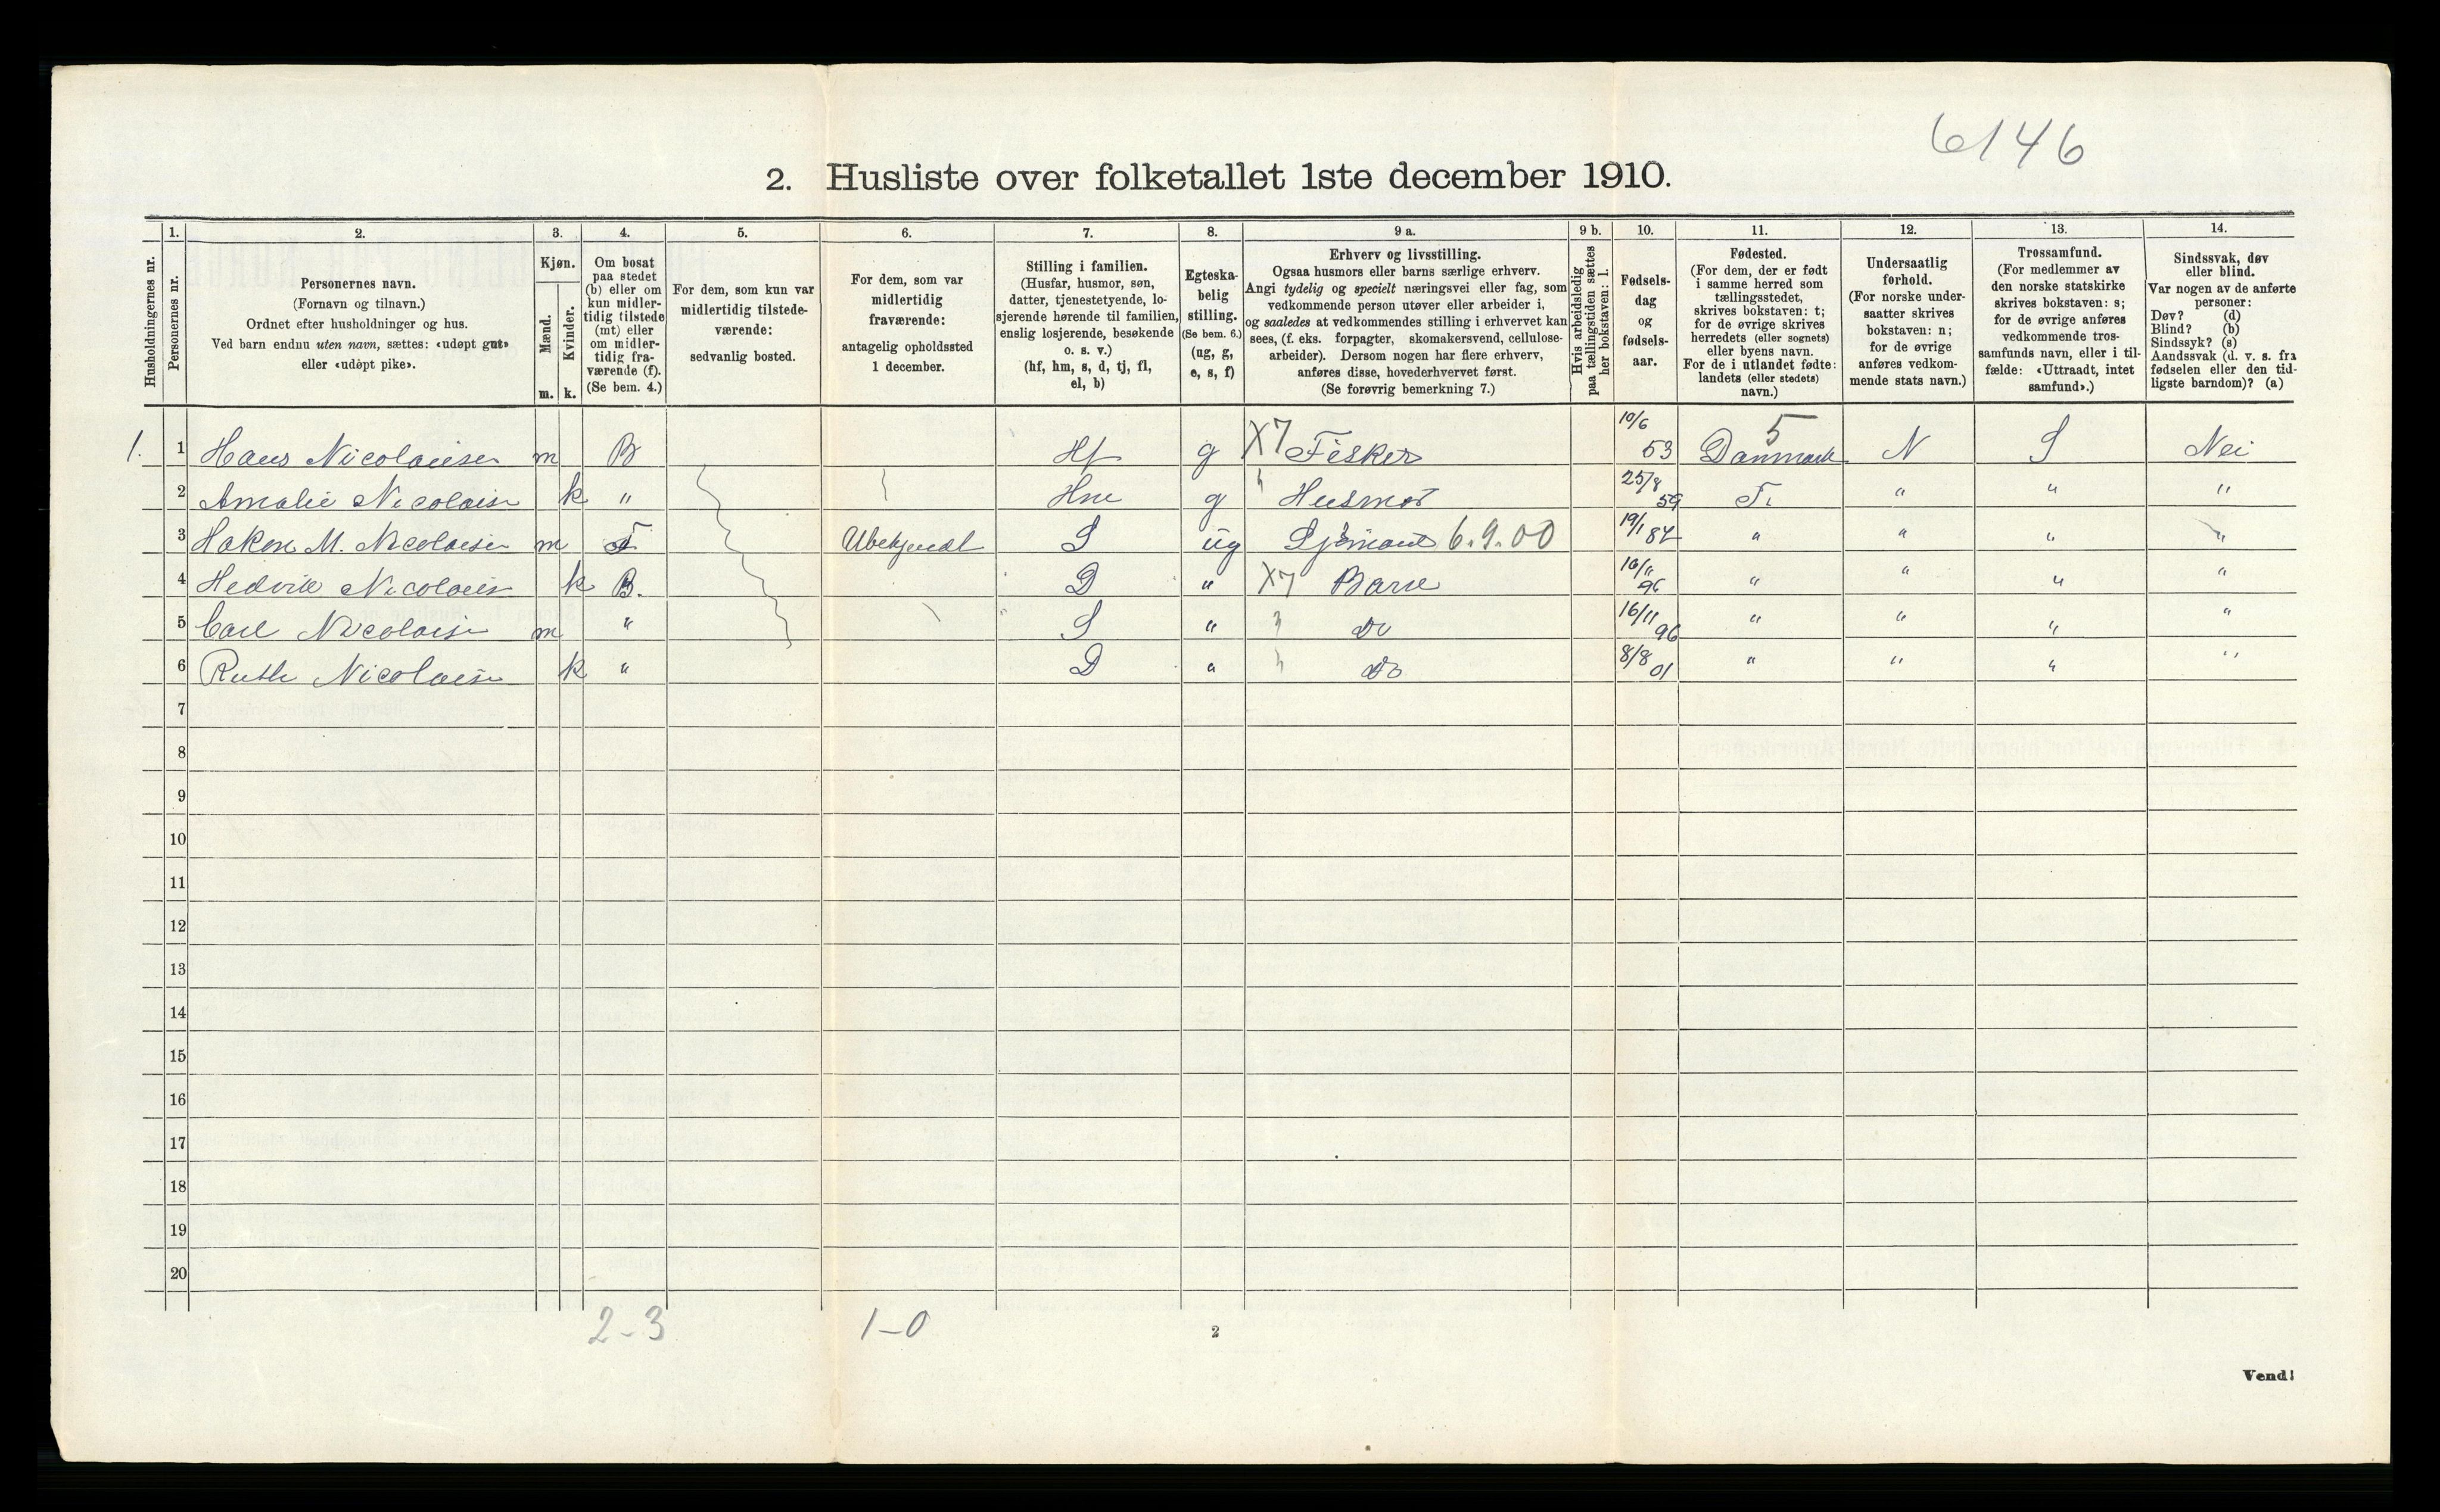 6146
2. Husliste over folketallet 1ste december 1910.
Husholdningernes nr.
1. Personernes nr.
2. Personernes navn.
(Fornavn og tilnavn.)
Ordnet efter husholdninger og hus.
Ved barn endnu uten navn, sættes: «udøpt gut»
eller «udøpt pike».
3. Kjøn.
Mænd. m.
Kvinder. k.
4. Om bosat
paa stedet
(b) eller om
kun midler-
tidig tilstede
(mt) eller
om midler-
tidig fra-
værende (f).
(Se bem. 4.)
5. For dem, som kun var
midlertidig tilstede-
værende:
sedvanlig bosted.
6. For dem, som var
midlertidig
fraværende:
antagelig opholdssted
1 december.
7. Stilling i familien.
(Husfar, husmor, søn,
datter, tjenestetyende, lo-
sjerende hørende til familien,
enslig losjerende, besøkende
o. s. v.)
(hf, hm, s, d, tj, fl,
el, b)
8. Egteska-
belig
stilling.
(Se bem. 6.)
(ug, g,
e, s, f)
9 a. Erhverv og livsstilling.
Ogsaa husmors eller barns særlige erhverv.
Angi tydelig og specielt næringsvei eller fag, som
vedkommende person utøver eller arbeider i,
og saaledes at vedkommendes stilling i erhvervet kan
sees, (f. eks. forpagter, skomakersvend, cellulose-
arbeider). Dersom nogen har flere erhverv,
anføres disse, hovederhvervet først.
(Se forøvrig bemerkning 7.)
9 b. Hvis arbeidsledig
paa tællingstiden sættes
her bokstaven: l.
10. Fødsels-
dag
og
fødsels-
aar.
11. Fødested.
(For dem, der er født
i samme herred som
tællingsstedet,
skrives bokstaven: t;
for de øvrige skrives
herredets (eller sognets)
eller byens navn.
For de i utlandet fødte:
landets (eller stedets)
navn.)
12. Undersaatlig
forhold.
(For norske under-
saatter skrives
bokstaven: n;
for de øvrige
anføres vedkom-
mende stats navn.)
13. Trossamfund.
(For medlemmer av
den norske statskirke
skrives bokstaven: s;
for de øvrige anføres
vedkommende tros-
samfunds navn, eller i til-
fælde: «Uttraadt, intet
samfund».)
14. Sindssvak, døv
eller blind.
Var nogen av de anførte
personer:
Døv? (d)
Blind? (b)
Sindssyk? (s)
Aandssvak (d. v. s. fra
fødselen eller den tid-
ligste barndom)? (a)
1. 1 Hans Nicolaisen m B Hf g X7 Fisker 10/6 53 5 Danmark N S Nei
2 Amalie Nicolaisn k " Hm g " Husmor 25/8 59 T. " " "
3 Hakon M. Nicolaisen m F Ubekjendt S ug Sjømand 6.9.00 19/1 82 " " " "
4 Nicolais k B. D " X7 Barn 16/11 96 " " " "
5 Carl Nicolaisn m " S " " Do 16/11 96 " " " "
6 Ruth Nicolaisn k " D " " Do 8/8 01 " " " "
7
8
9
10
11
12
13
14
15
16
17
18
19
20
2-3 1-0
2
Vend!